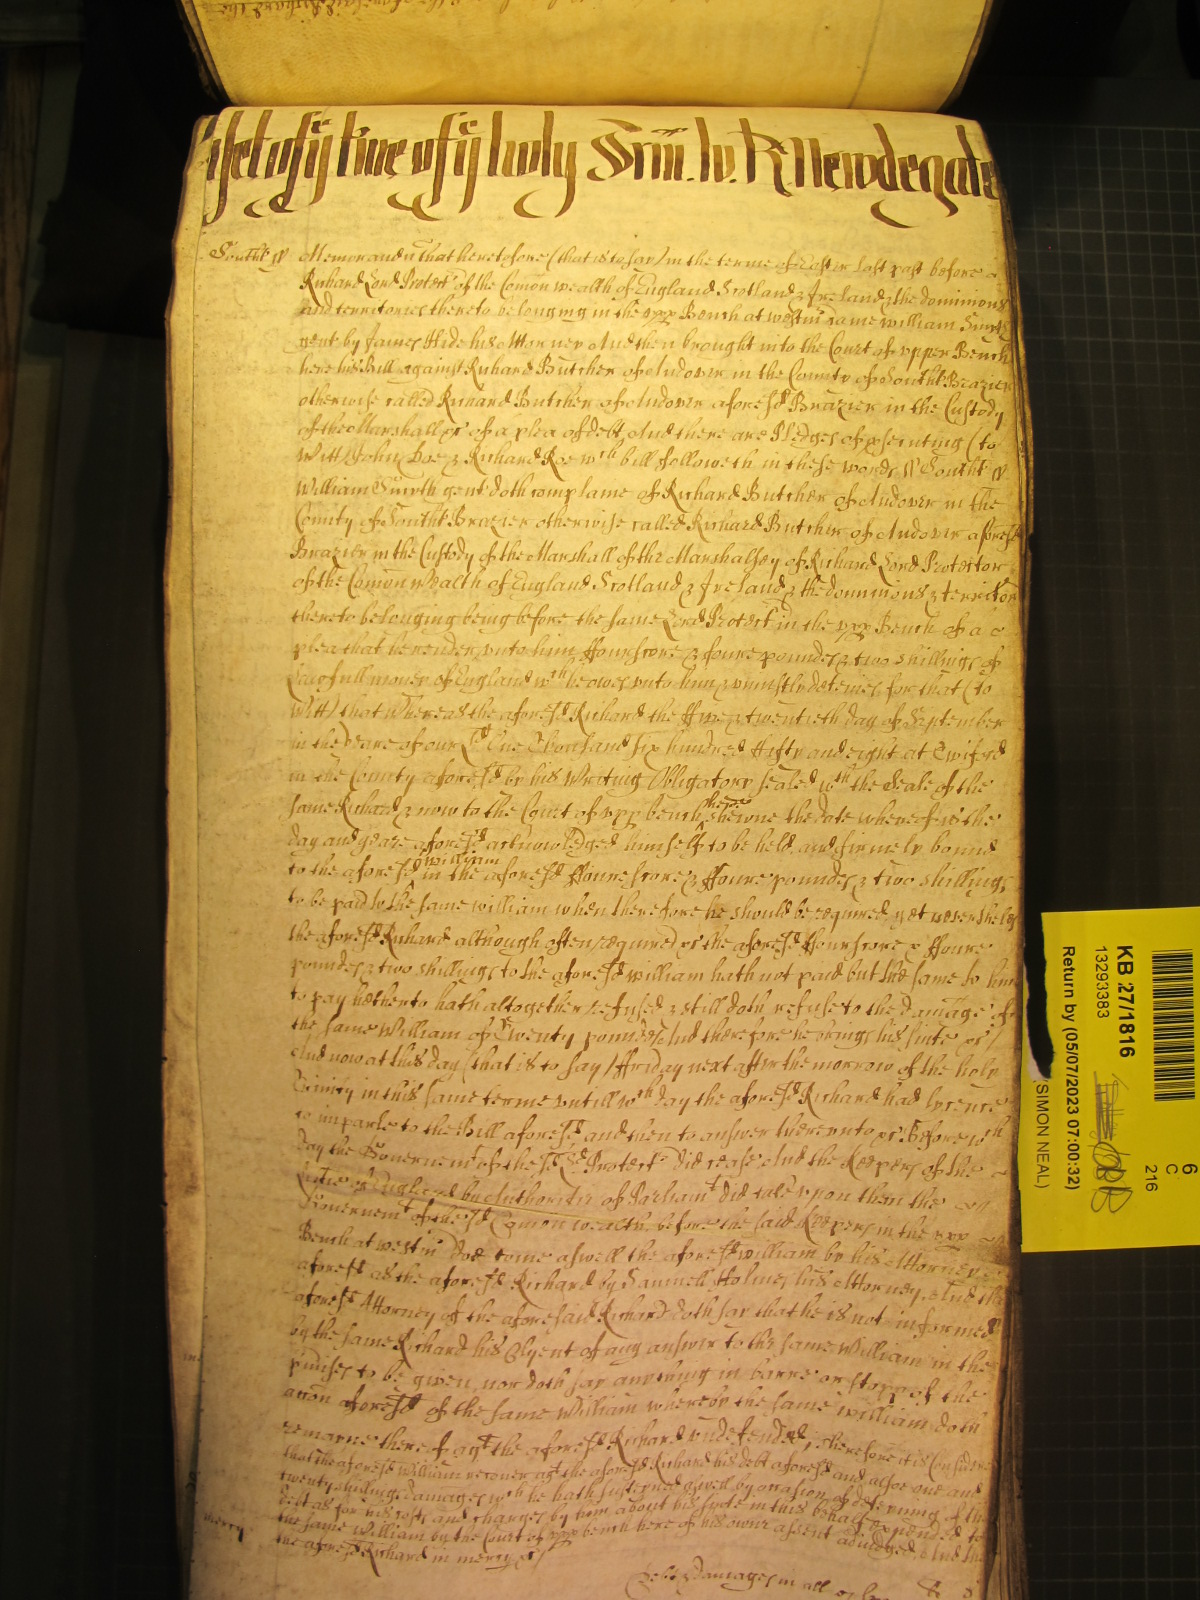 yset of ye terme of ye holy Trin. Ro. R. Newdegate
Southt ss Memorandu That heretofore (that is to say) in the terme of Easter last past before
Richard Lord Protectr of the Comon wealth of England Scotland & Ireland & the dominions
and territories thereto belonging in the upp Bench at westmr came William Smyth
gent by James Hide his Attorney And then brought into the Court of upper Bench
here his Bill against Richard Butcher of Andover in the County of Southt Brazier
otherwise called Richard Butcher of Andover aforesd Brazier in the Custody
of the Marshall &c of a plea of debt And there are Pledges of psecuting (to
Witt) John Doe & Richard Roe wch bill followeth in these words ss Southt ss
William Smyth gent doth complaine of Richard Butcher of Andover in the
County of Southt Brazier otherwise called Richard Butcher of Andover aforesd
Brazier in the Custody of the Marshall of the Marshalsey of Richard Lord Protector
of the Comon Wealth of England Scotland & Ireland & the dominions & territor
thereto belonging being before the same Lord Protectr in the upp Bench of a
plea that he render unto him ffourscore & foure pounds & two shillings of
Lawfull money of England wch he owes unto him & uniustly deteines for that (to
Witt) that Whereas the aforesd Richard the ffive & twentieth day of September
in the yeare of our Ld One Thousand six hundred ffifty and eight at Twiford
in the County aforesd by his Writing Obligatory sealed wth the Seale of the
same Richard & now to the Court of upp bench here shewne the date whereof is the
day and yeare aforesd acknowledged himself to be held and firmely bound
to the aforesd William in the aforesd ffourescore & ffoure pounds & two shillings
to be paid to the same William when therefore he should be required yet nevertheles
the aforesd Richard although often required &c the aforesd ffourscore & ffoure
pounds & two shillings to the aforesd William hath not paid but the same to him
to pay hetherto hath altogether refused & still doth refuse to the damage of
the same William of Twenty pounds And therefore he brings his suite &c /
And now at this day (that is to say) ffriday next after the morrow of the holy
Trinity in this same terme untill wch day the aforesd Richard had lycence
to imparle to the Bill aforesd and then to answer thereunto &c Before wch
day the Governemt of the sd Ld Protectr did cease And the Keepers of the
Libtie of England by Authoritie of Parliamt did take upon them the
Governemt of the sd Comon wealth, before the said Keepers in the upp
Bench at westmr doe come aswell the aforesd William by his Attorney
aforesd as the aforesd Richard by Samuell Holmes his Attorney And the
aforesd Attorney of the aforesaid Richard doth say that he is not informed
by the same Richard his Clyent of any answer to the same William in the
pmises to be given nor doth say any thing in barre or stopp of the
accon aforesd of the same William whereby the same William doth
remaine thereof agt the aforesd Richard undefended, Therefore it is Consider
that the aforesd William recover agt the aforesd Richard his debt aforesd and alsoe one and
twenty shillings damages wch he hath susteined aswell by occasion of deteining of the
debt as for his costs and charges by him about his suite in this behalf expended to
the same William by the Court of upp bench here of his owne assent adiudged, And the
mercy the aforesd Richard in mercy &c
Debt & damages in all
KB 27/1816
13293383
Return by (05/07/2023 07:00:32)
(SIMON NEAL)
6
C
216